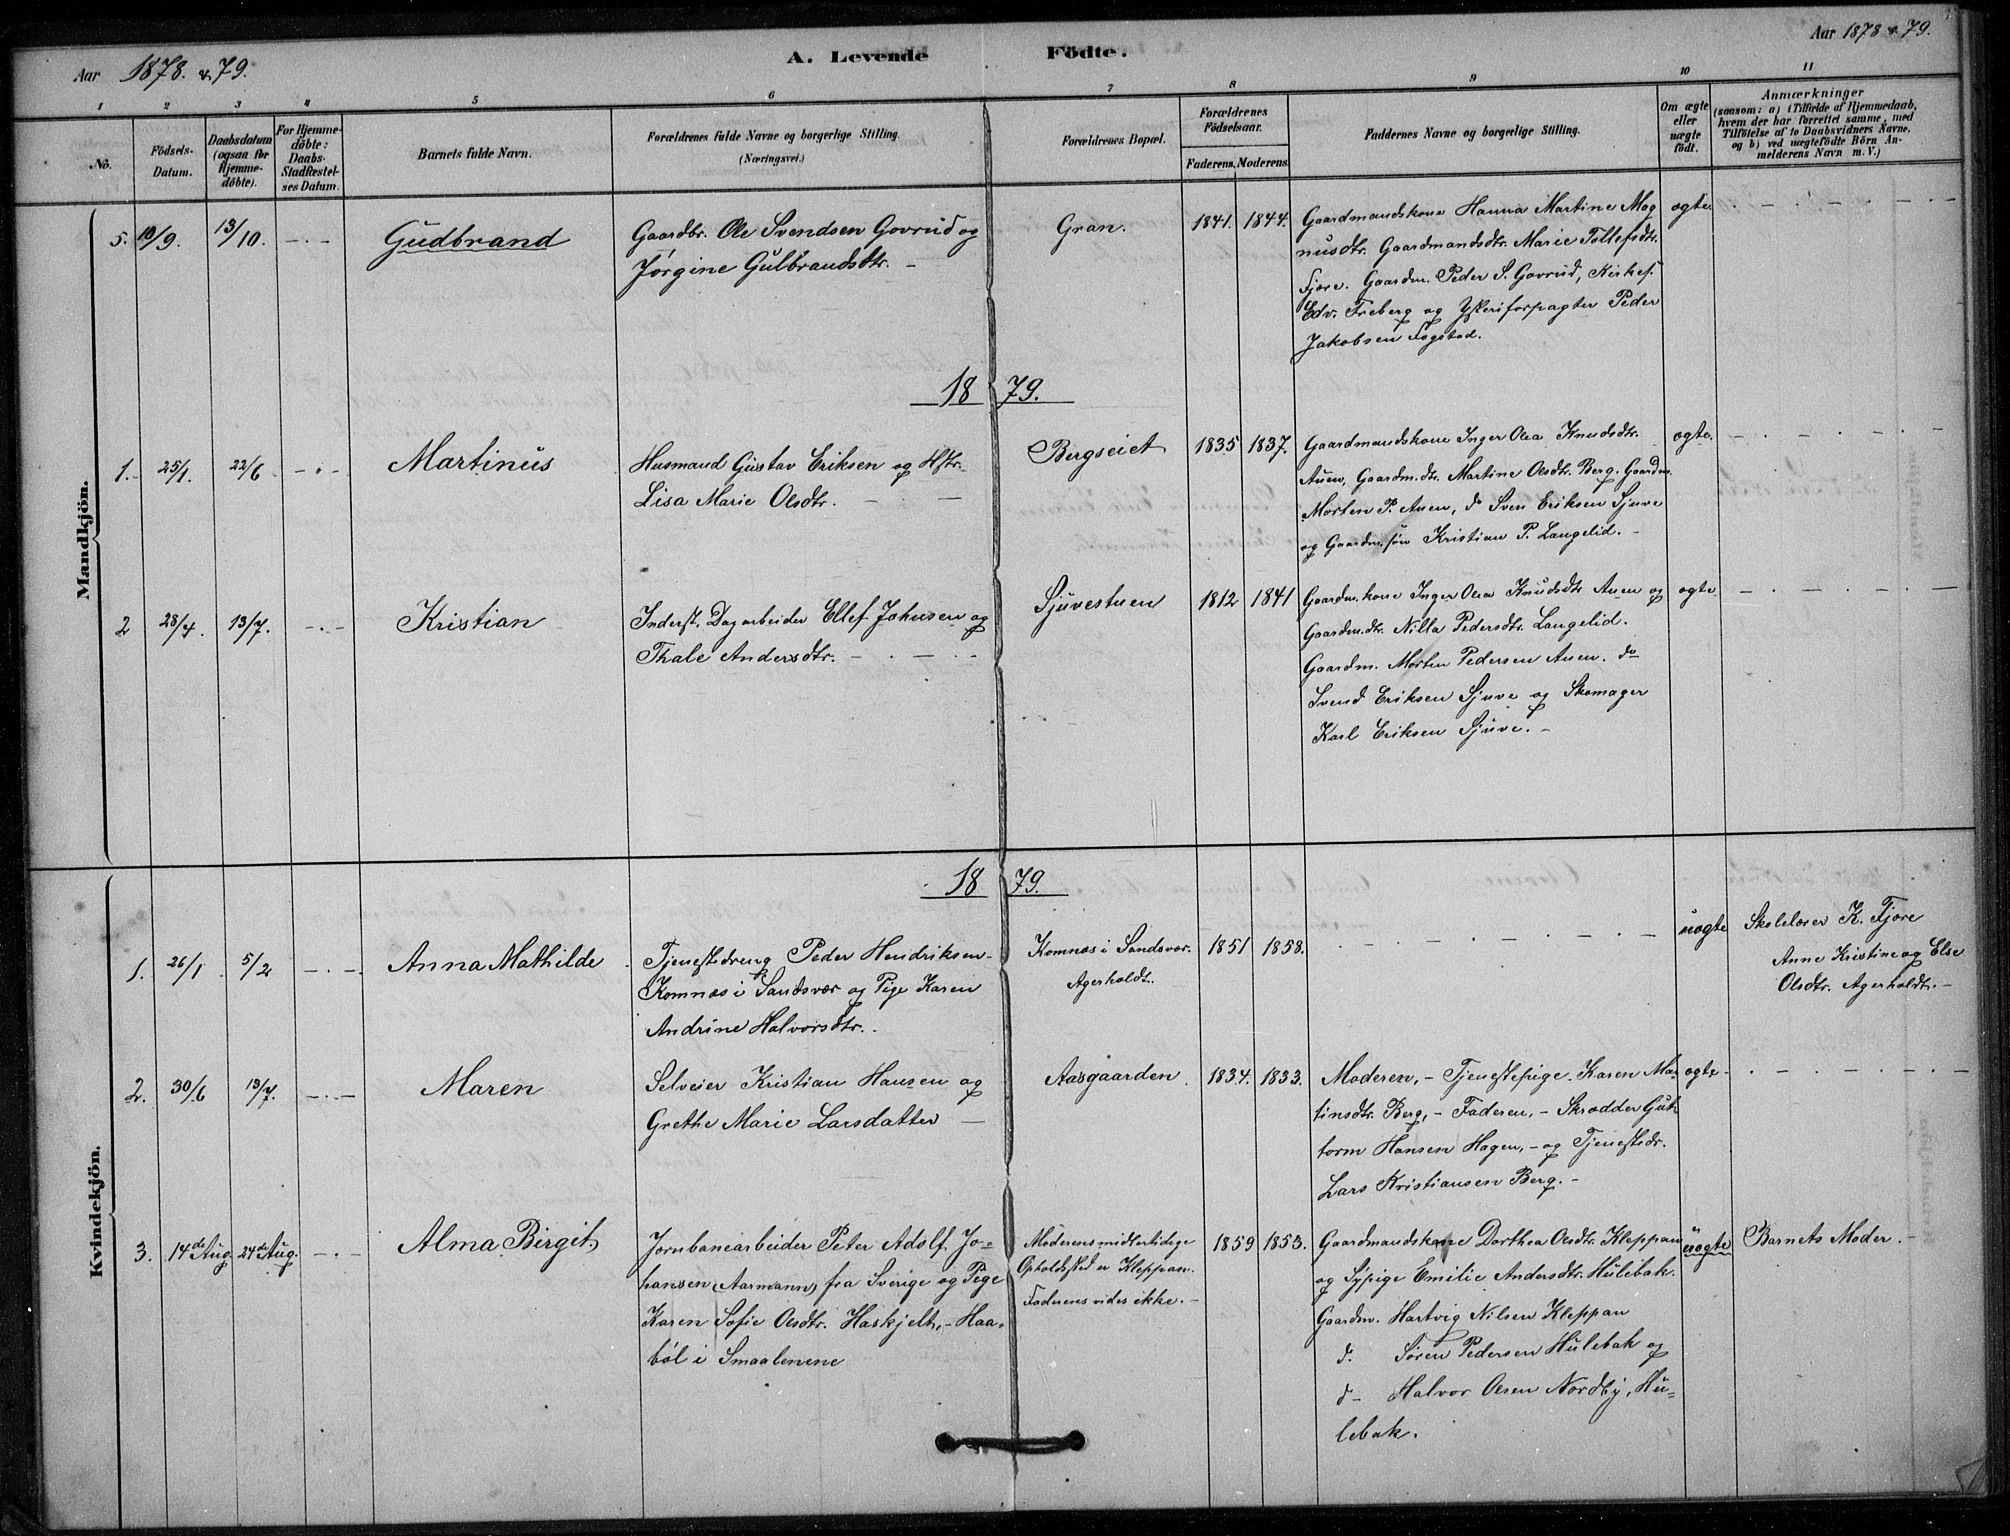 Aar 1878 & 79.
A. Levende Födte.
Aar 1878 & 79.
1 2 3 4 5 6 7 8 9 10 11
No.
Födsels-Datum.
Daabsdatum (ogsaa for Hjemmedöbte).
For Hjemmedöbte: Daabs-Stadfæstelses Datum.
Barnets fulde Navn.
Forældrenes fulde Navne og borgerlige Stilling.
(Næringsvei.)
Forældrenes Bopæl.
Forældrenes Födselsaar.
Faderens. Moderens.
Faddernes Navne og borgerlige Stilling.
Om ægte eller uægte födt.
Anmærkninger
(saasom: a) i Tilfælde af Hjemmedaab, hvem der har forrettet samme, med Tilföielse af to Daabsvidners Navne, og b) ved uægtefödte Börn Anmelderens Navn m. V.)
Mandkjön.
5. 19/9. 13/10. Gudbrand
Gaardbr. Ole Svendsen Govrud og
Jørgine Gulbrandsdtr. -
Gran. 1841. 1844.
Gaardmandskone Hanna Martine Mag
nusdtr. Gaardmandsdtr. Marie Tollefsdtr.
Fjøre. Gaardm. Peder S. Govrud, Kirkes.
Edv. Freberg og Yskeriforpagter Peder
Jakobsen Fogstad.
ægte
1879.
1. 25/1. 22/6 Martinus
Husmand Gustav Eriksen og Hstr.
Lisa Marie Olsdtr.
Bergseiet 1835 1837.
Gaardmandskone Inger Olea Knudsdtr.
Auen, Gaardm.dtr. Martine Olsdtr. Berg. Gaardm.
Morten P. Auen, do Sven Eriksen Sjuve
og Gaardm.søn Kristian P. Langelid. -
ægte.
2 28/4. 13/7. Kristian
Inderst, Dagarbeider Ellef Johnsen og
Thale Andersdtr.
Sjuvestuen 1812 1841
Gaardm.kone Inger Olea Knudsdtr Auen og
Gaardm.dtr. Nilla Pedersdtr. Langelid.
Gaardm. Morten Pedersen Auen. do
Svend Eriksen Sjuve og Skomager
Karl Eriksen Sjuve. -
ægte
Kvindekjön.
1879.
1. 26/1 5/2 Anna Mathilde
Tjenestedreng Peder Hendriksen
Komnæs i Sandsvær og Pige Karen
Andrine Halvorsdtr.
Komnæs i Sandsvær.
Agerholdt.
1851 1858.
uægte
Skolelærer K. Fjøre
Anne Kristine og Else
Olsdtr. Agerholdt. -
2. 30/6 13/7. Maren
Selveier Kristian Hansen og
Grethe Marie Larsdatter
Aasgaarden 1834. 1833.
Moderen, - Tjenestepige Karen Mar
tinsdtr. Berg, - Faderen, - Skrædder Gut
torm Hansen Hagen, - og Tjenestedr.
Lars Kristiansen Berg. -
ægte
3. 14de Aug. 24de Aug. Alma Birgit
Jernbanearbeider Peter Adolf Jo-
hansen (Aarmann) fra Sverige og Pige
Karen Sofie Olsdtr. Haskjelt, - Haa-
bøl i Smaalenene
Moderens midlertidige
Opholdssted er Kleppan.
Faderens vides ikke. -
1859 1853.
Gaardmandskone Dorthea Olsdtr. Kleppan
og Sypige Emilie Andersdtr. Hulebak.
Gaardm. Hartvig Nilsen Kleppan
d. Søren Pedersen Hulebak og
d- Halvor Olsen Nordby, Hu-
lebak.
uægte
Barnets Moder. -